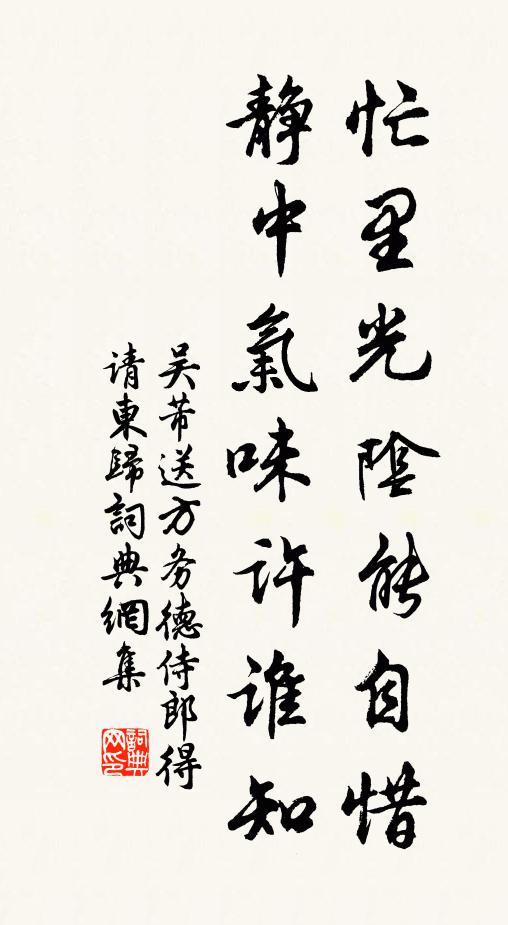 忙里光陰能自惜
静中氣味許誰知
吴芾送方务德侍郎得
请東歸詞典網集
詞典
网印